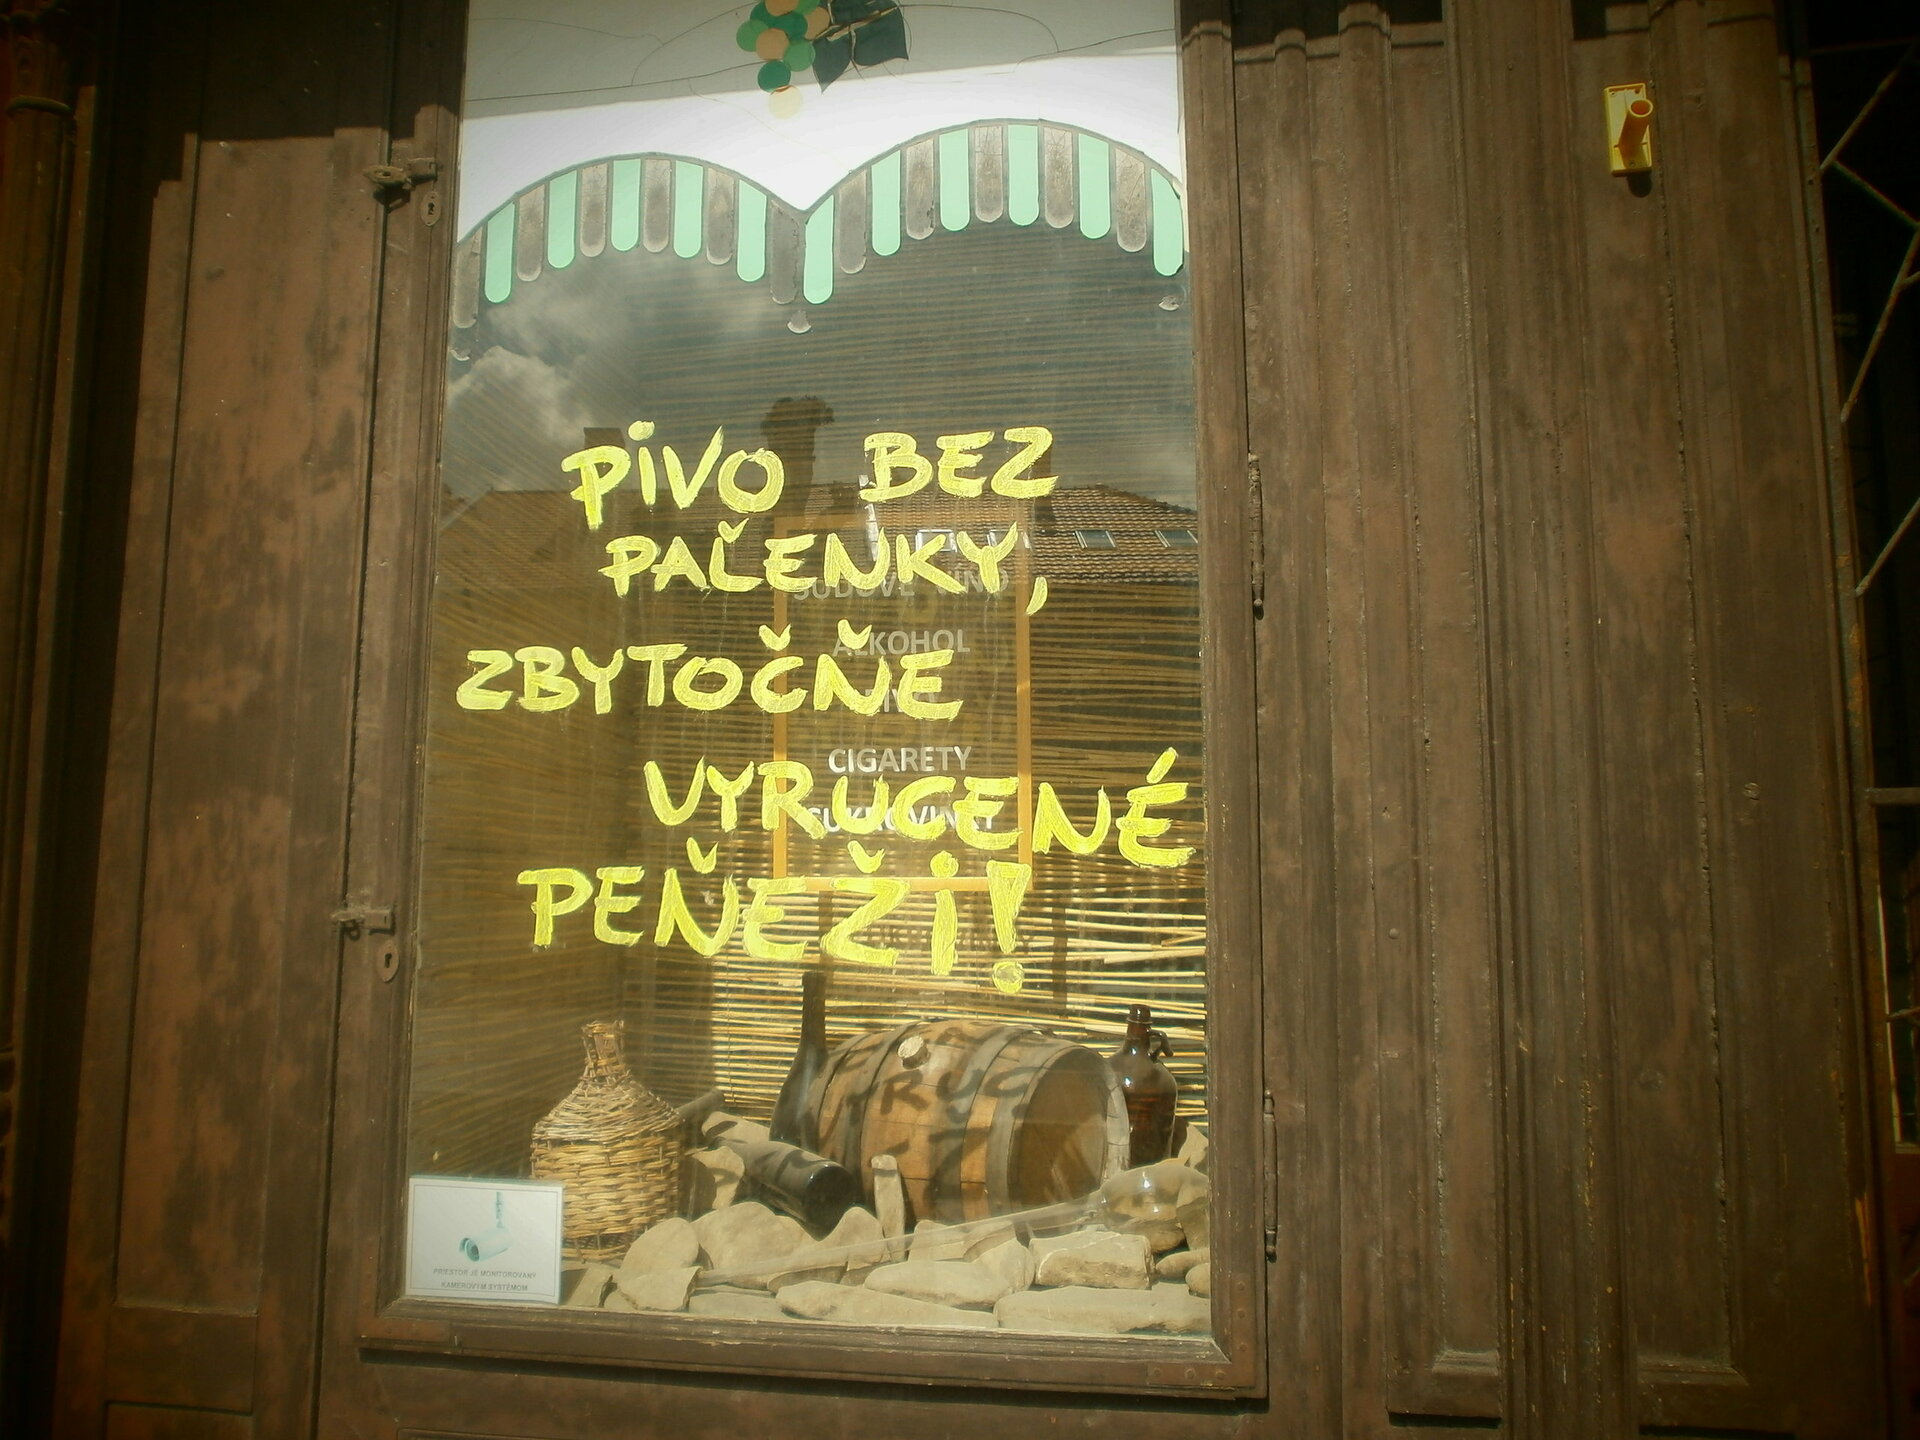 PIVO BEZ
PAĽENKY,
ZBYTOČŇE
VYRUCENÉ
PEŇEŽI!
SUDOVÉ VÍNO
ALKOHOL
CIGARETY
CUKROVINKY
PRIESTOR JE MONITOROVANÝ
KAMEROVÝM SYSTÉMOM